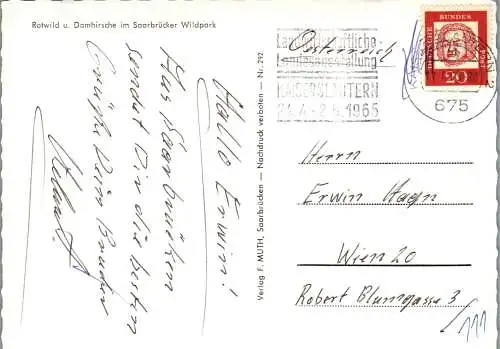 Rotwild u. Damhirsche im Saarbrücker Wildpark
Hallo Erwin!
Aus Saarbrücken
sendet Dir die besten
Grüße Dein Bruder
Verlag F. MUTH, Saarbrücken — Nachdruck verboten — Nr. 292
Österreich
Landwirtschaftliche-
Landesausstellung
KAISERSLAUTERN
24.4.-2.5.1965
DEUTSCHE
BUNDES
POST
20
675
Herrn
Erwin Hagn
Wien 20
Robert Blumgasse 3/
111